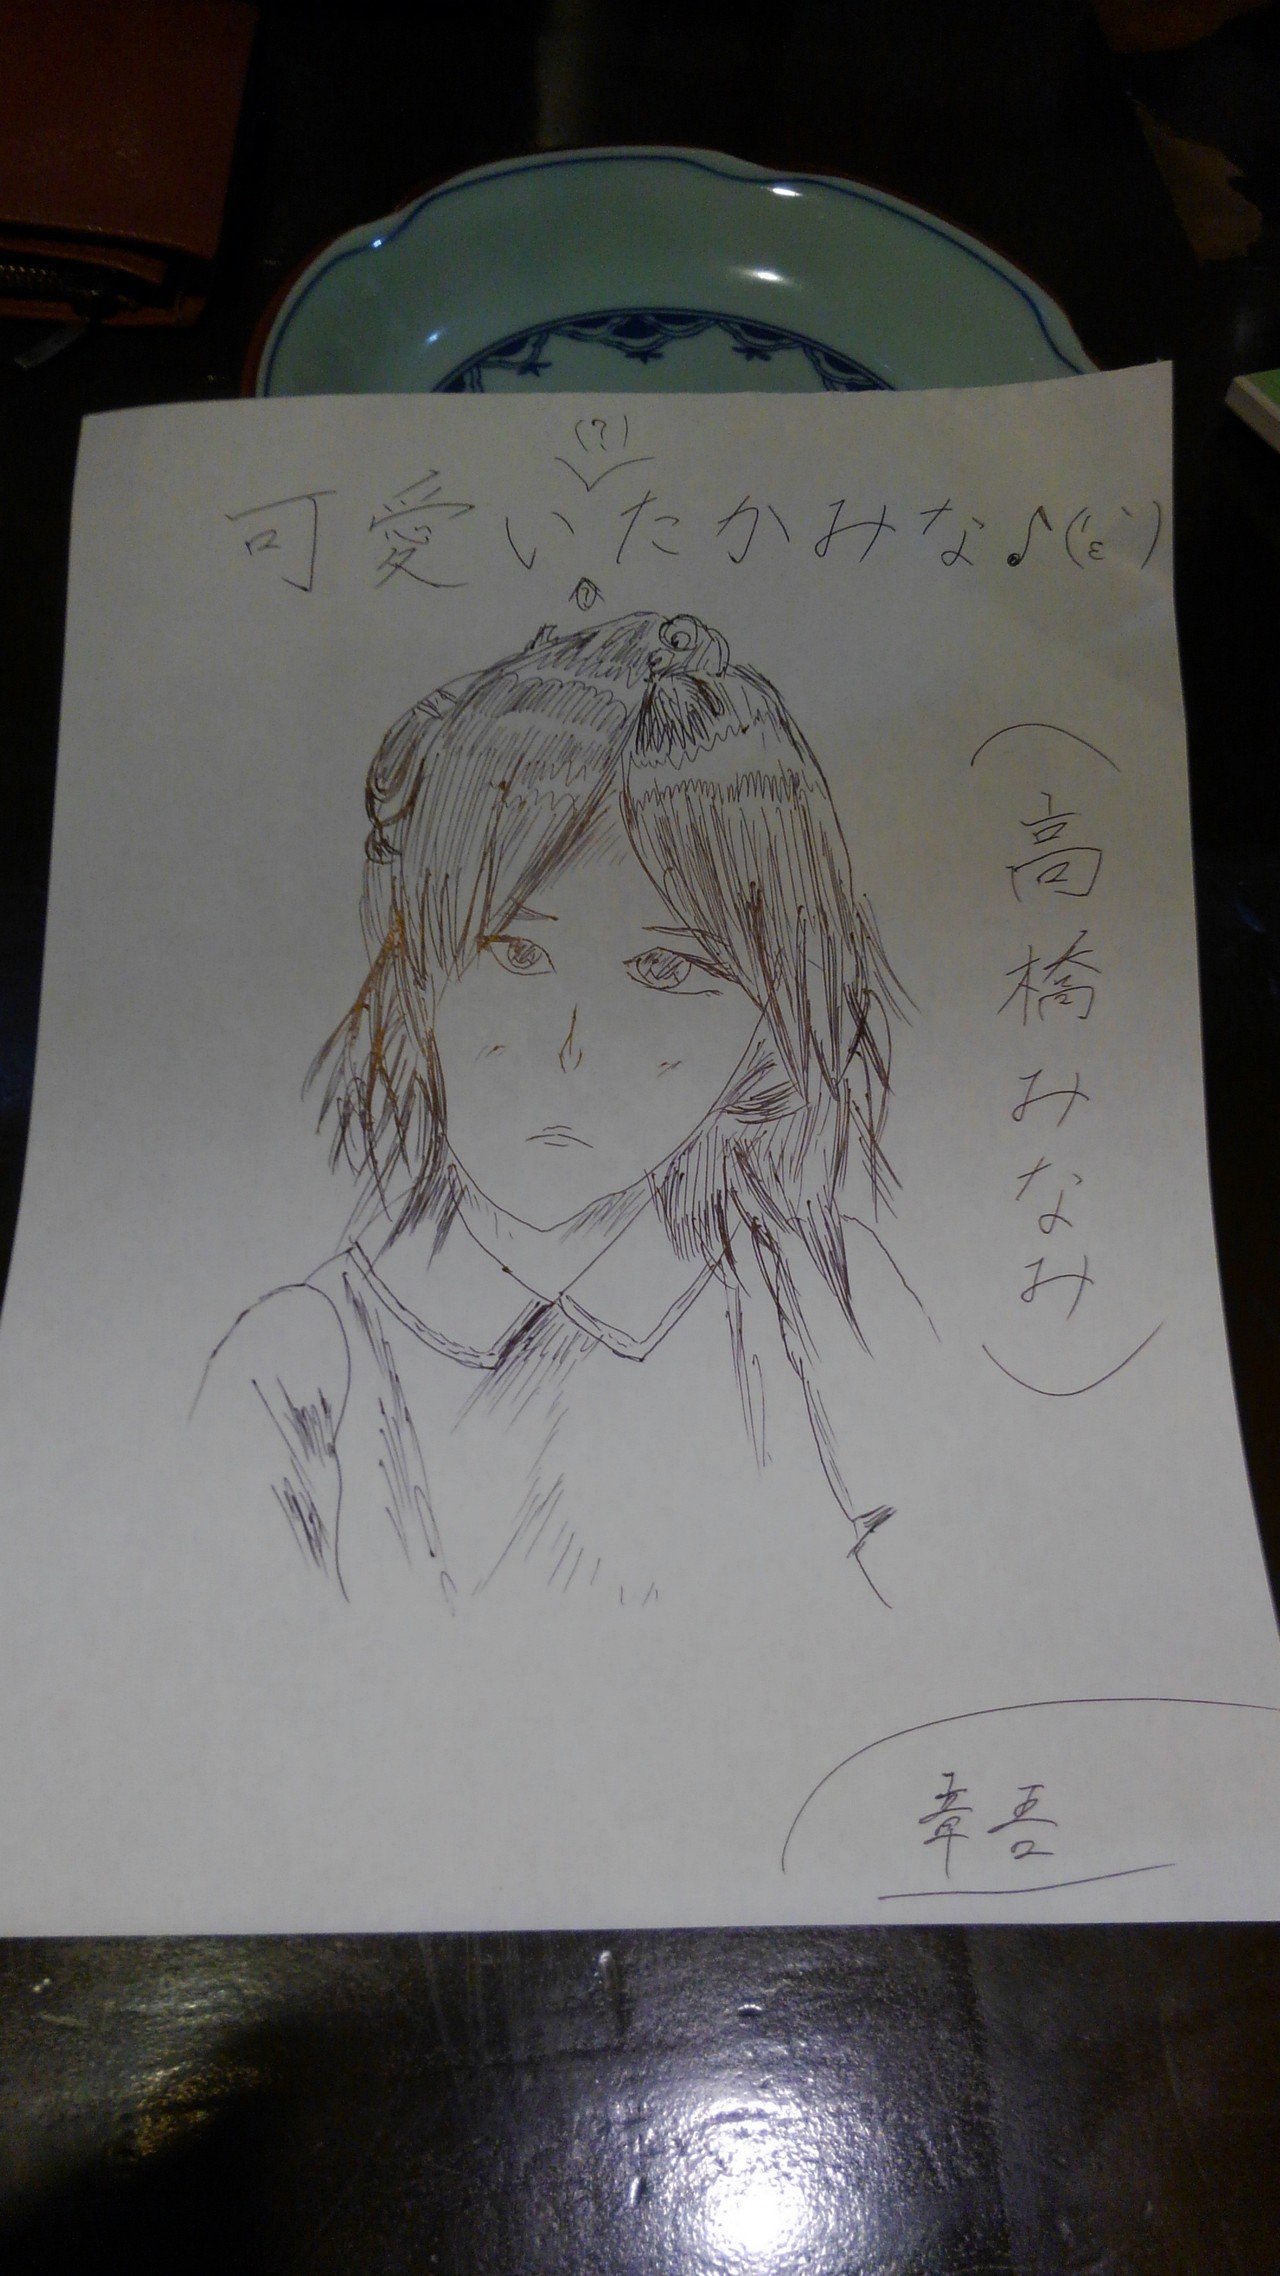 (?)
可愛いたかみな♪(´ε｀)
(高橋みなみ)
章吾